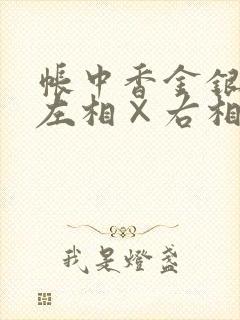 帐中香金银
左相×右相
我是燈盞